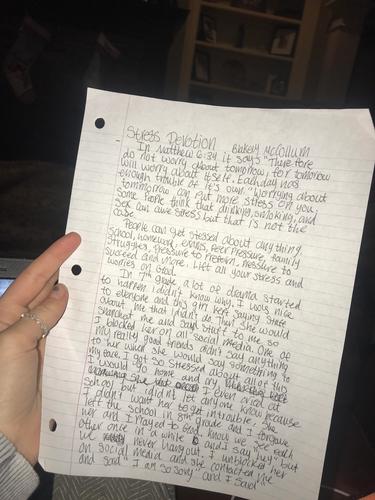 Stress Devotion Blakely McCollum
- In Matthew 6:34 it says "Therefore
do not worry about tomorrow, for tomorrow
will worry about itself. Each day has
enough trouble of it's own". Worrying about
tomorrow can put more stress on you.
Some People think that drinking, smoking, and
sex can ease stress but that is not the
case.
People can get stessed about anything
School, homework, exams, Peer Pressure, family
struggles, Pressure to Preform, Pressure to
succeed and more. Lift all your stress and
worries on God.
In 7th grade a lot of drama started
to happen. I didn't know why. I was nice
to everyone and this girl kept saying stuff
about me that I didn't do. Then she would
snapchat me and says stuff to me so I
blocked her on all social media. One of
my really good friends didn't say anything
to her when she would say something to
my face. I got so stressed about all of this
I would go home and cry. I even cried at
school but I didn't let anyone know because
I didn't want her to get in trouble. She
left the school in 8th grade and I forgave
her and I Prayed to God. Now we see each
other once in a while and I say "hey" but
we never hangout. I unblocked her
on social media and she contacted me
and said "I am so sorry" and I said